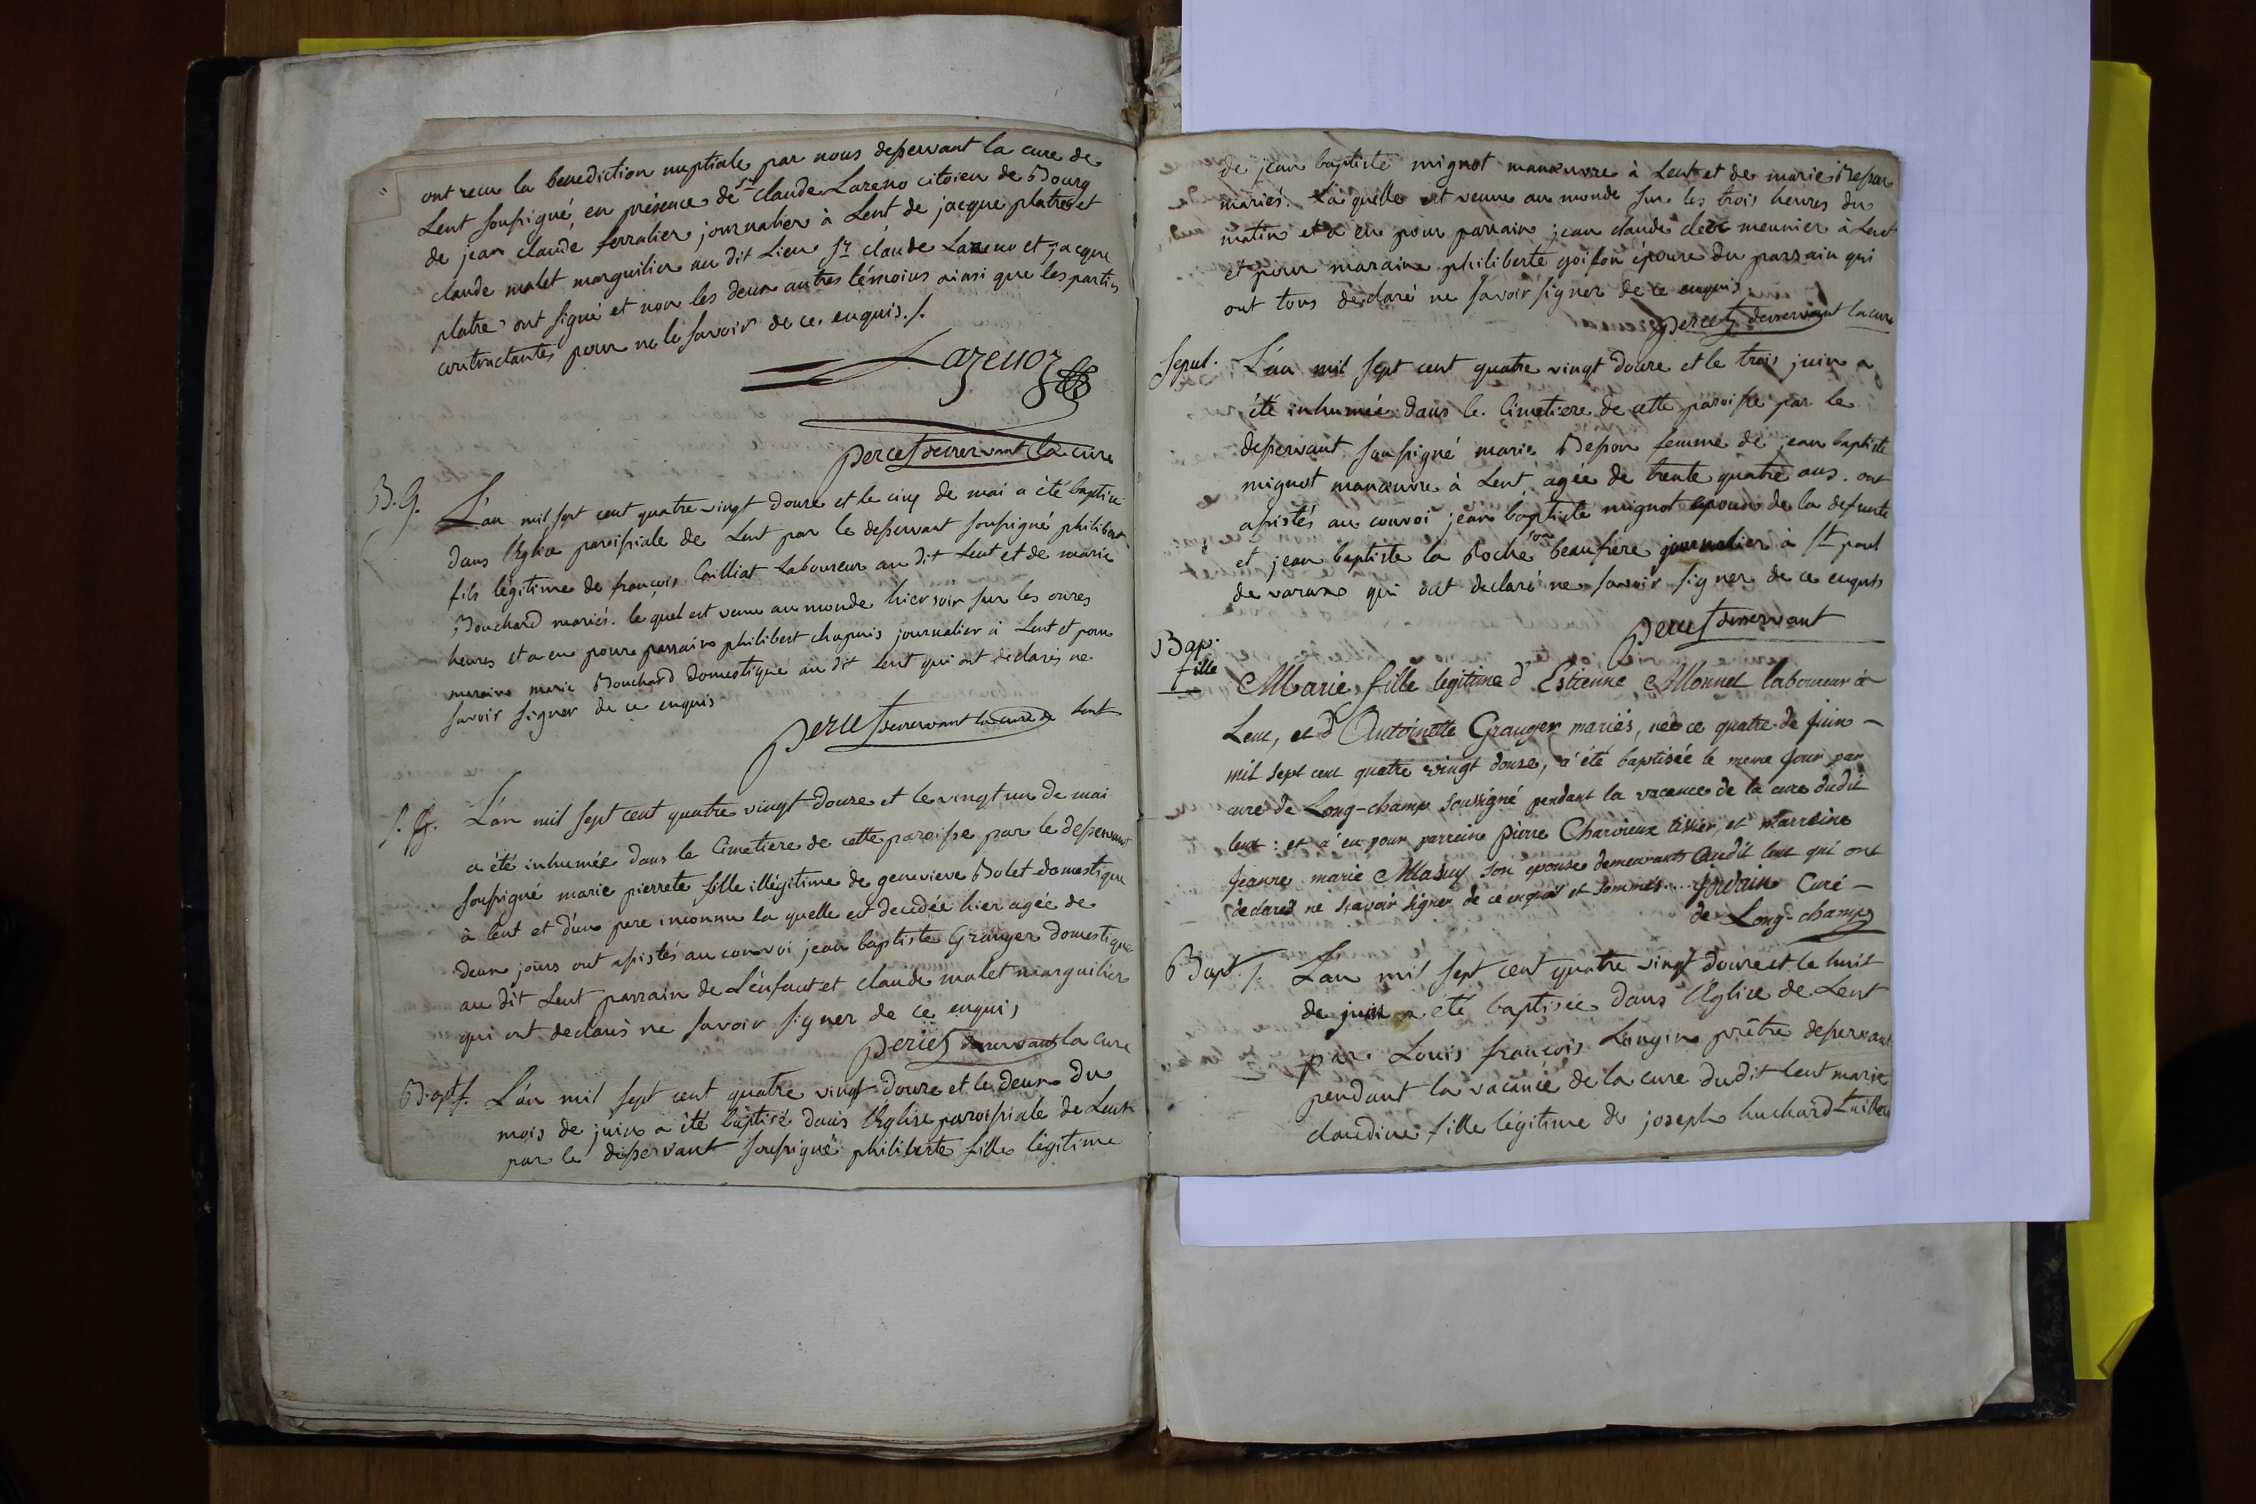 ont recu la benediction nuptiale par nous desservant la cure de
Lent soussigné en présence de Sr claude Lareno citoien de Bourg
de jean claude ferralier journalier à Lent de jacque platre et
claude malet marguilier au dit Lieu Sr claude Lazeno et jacque
platre ont signé et non les deux autres témoins ainsi que les parties
contractantes pour ne le savoir de ce enquis./.
Lazenoz
percet desservant la cure
B. G. L'an mil sept cent quatre vingt douze et le cinq de mai a été baptisé
dans l'Eglise paroissiale de Lent par le desservant soussigné philibert
fils légitime de françois Cailliat Laboureur au dit Lent et de marie
Bouchard mariés. le quel est venu au monde hier soir sur les onzes
heures et a eu pour parrain philibert chapuis journalier à Lent et pour
maraine marie Bouchard domestique au dit Lent qui ont declarés ne
savoir signer de ce enquis
percet desservant la cure de Lent
S. f. L'an mil sept cent quatre vingt douze et le vingt un de mai
a été inhumée dans le Cimetiere de cette paroisse par le desservant
soussigné marie pierrete fille illégitime de genevieve Bolet domestique
à lent et d'un pere inconnu la quelle est decedée hier agée de
deux jours ont assistés au convoi jean baptiste Granger domestique
au dit Lent parrain de L'enfant et claude malet marguilier
qui ont declarés ne savoir signer de ce enquis
percet desservant la cure
Bapt f. L'an mil sept cent quatre vingt douze et le deux du
mois de juin a été baptisé dans l'Eglise paroissiale de Lent
par le desservant soussigné philiberte fille légitime
de jean baptiste mignot manœuvre à Lent et de marie Besson
mariés. La quelle est venue au monde sur les trois heures du
matin et a eu pour parrain jean claude meunier à Lent
et pour maraine philiberte épouse du parrain qui
ont tous déclaré ne savoir signer de ce enquis
percet desservant la cure
Sepul. L'an mil sept cent quatre vingt douze et le trois juin a
été inhumée dans le Cimetiere de cette paroisse par le
desservant soussigné marie Besson femme de jean baptiste
mignot manœuvre à Lent agée de trente quatre ans. ont
assistés au convoi jean baptiste mignot epoux de la defunte
et jean baptiste la Roche son beaufrere journalier à St paul
de varax qui ont declaré ne savoir signer de ce enquis
percet desservant
Bap.
fille Marie fille legitime d'Estienne Monnet laboureur à
Lent, et d'Antoinette Granger mariés, née ce quatre de juin
mil sept cent quatre vingt douze, a été baptisée le meme jour par
curé de Long-champ soussigné pendant la vacance de la cure dudit
lent : et a eu pour parraine pierre Charvieux tissier, et marraine
jeanne marie son epouse demeurants audit lent qui ont
declarés ne sçavoir signer de ce enquis et sommés.... jordain Curé
de Long-champ
Bapt. f. L'an mil sept cent quatre vingt douze et le huit
de juin a été baptisée dans l'Eglise de Lent
par Louis françois Longin prêtre desservant
pendant la vacance de la cure dudit Lent marie
claudine fille légitime de joseph huchard